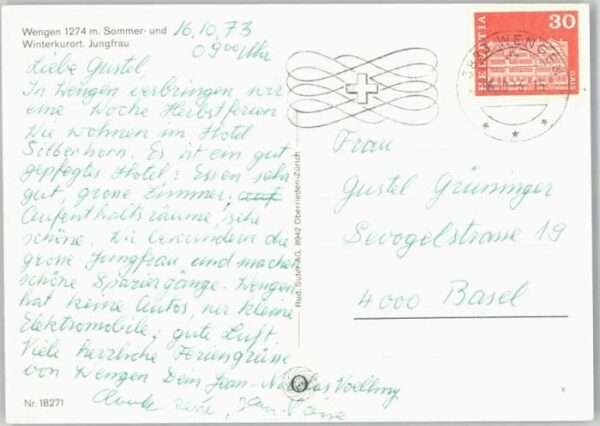 Wengen 1274 m. Sommer- und
Winterkurort. Jungfrau
16.10.73
0900 Uhr
Liebe Gustel,
In Wengen verbringen wir
eine Woche Herbstferien.
Wir wohnen im Hotel
Silberhorn. Es ist ein gut
gepflegtes Hotel: Essen sehr
gut, grosse Zimmer,
Aufenthaltsräume, sehr
schöne. Wir bewundern die
grosse Jungfrau und machen
schöne Spaziergänge. Wengen
hat keine Autos, nur kleine
Elektromobile; gute Luft.
Viele herzliche Feriengrüsse
von Wengen Dein Jean-Nicolas
Nr. 18271
Rud. Suter AG, 8942 Oberrieden-Zürich
HELVETIA
30
GAIS
WENGEN
Frau
Gustel Grüninger
Sevogelstrasse 19
4000 Basel